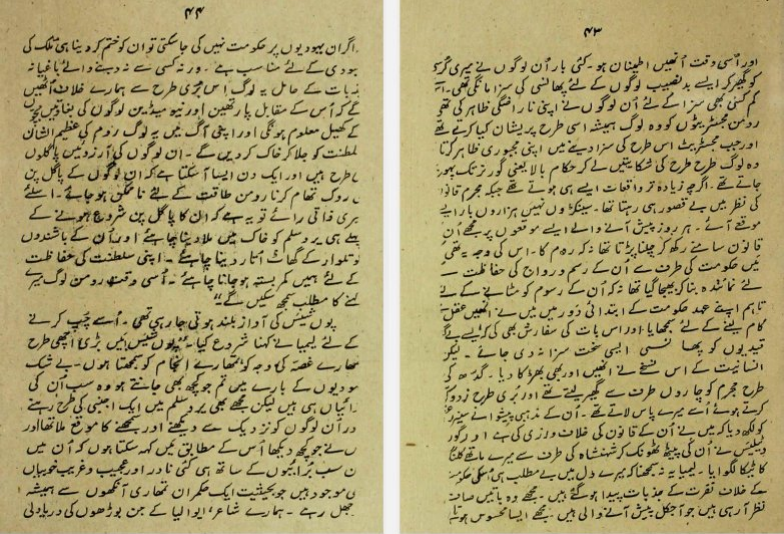 ۴۳
اور اُسی وقت اُنھیں اطمینان ہو۔ کئی بار اُن لوگوں نے میری
کو گھیر کر ایسے بدنصیب لوگوں کے لئے پھانسی کی سزا مانگی تھی۔
کم کسی بھی سزا کے لئے اُن لوگوں نے اپنی ناراضگی ظاہر کی تھی
رومن مجسٹریٹوں کو وہ لوگ ہمیشہ اسی طرح پریشان کیا کرتے تھے
اور جب مجسٹریٹ اس طرح کی سزا دینے میں اپنی مجبوری ظاہر کرتا
وہ لوگ طرح طرح کی شکایتیں لے کر حکام بالا یعنی گورنر تک
جاتے تھے۔ اگرچہ زیادہ تر واقعات ایسے ہی ہوتے تھے جبکہ مجرم
کی نظر میں بے قصور ہی رہتا تھا۔ سینکڑوں نہیں ہزاروں بار ایسے
موقعے آئے۔ ہر روز پیش آنے والے ایسے موقعوں پر مجھے اُن
قانون سامنے رکھ کر چلنا پڑتا تھا نہ کہ روم کا۔ اس کی وجہ یہ تھی
میں حکومت کی طرف سے اُن کے رسم و رواج کی حفاظت
لئے نمائندہ بنا کر بھیجا گیا تھا نہ کہ اُن کے رسوم کو مٹانے کے لئے
تاہم اپنے عہد حکومت کے ابتدائی دَور میں میں نے اُنھیں عقل
کام لینے کے لئے سمجھایا اور اس بات کی سفارش بھی کی کہ ایسے
قیدیوں کو پھانسی ایسی سخت سزا نہ دی جائے۔ لیکن
انسانیت کے اس نسخے نے انھیں اور بھی بھڑکا دیا۔ گدھ کی
طرح مجرم کو چاروں طرف سے گھیر لیتے تھے اور بُری طرح زدوکوب
کرتے ہوئے اُسے میرے پاس لاتے تھے۔ اُن کے مذہبی پیشوا نے
کو لکھ دیا کہ میں نے اُن کے قانون کی خلاف ورزی کی ہے اور گورنر
نے اُن کی پیٹھ ٹھونک کر شہنشاہ کی طرف سے میرے ماتھے کلنک
کا ٹیکا لگوایا۔ لیمیا یہ نہ سمجھنا کہ میرے دل میں بے مطلب ہی اُسکی حکومت
کے خلاف نفرت کے جذبات پیدا ہو گئے ہیں۔ مجھے وہ باتیں صاف
نظر آ رہی ہیں جو آجکل پیش آنے والی ہیں۔ مجھے ایسا محسوس ہوتا
۴۴
اگر ان یہودیوں پر حکومت نہیں کی جا سکتی تو ان کو ختم کر دینا ہی ملک کی
بہبودی کے لئے مناسب ہے۔ ورنہ کسی سے نہ دبنے والے باغیانہ
جذبات کے حامل یہ لوگ اس بُری طرح سے ہمارے خلاف اُٹھیں
گے کہ اُس کے مقابل پارتھین اور نیومیڈین لوگوں کی بغاوتیں بچوں
کے کھیل معلوم ہونگی اور اپنی آگ میں یہ لوگ روم کی عظیم الشان
سلطنت کو جلا کر خاک کر دیں گے۔ ان لوگوں کی آرزوئیں پاگلوں
طرح ہیں اور ایک دن ایسا آسکتا ہے کہ ان لوگوں کے پاگل پن
روک تھام کرنا رومن طاقت کے لئے ناممکن ہو جائے۔ اسلئے
میری ذاتی رائے تو یہ ہے کہ ان کا پاگل پن شروع ہونے کے
پہلے ہی یروسلم کو خاک میں ملا دینا چاہئے اور اُن کے باشندوں
کو تلوار کے گھاٹ اُتار دینا چاہئے۔ اپنی سلطنت کی حفاظت
کے لئے ہمیں کمر بستہ ہو جانا چاہئے۔ اُسی وقت رومن لوگ میرے
کہنے کا مطلب سمجھ سکیں گے"
پونٹیئس کی آواز بلند ہوتی جا رہی تھی۔ اُسے چُپ کرنے
کے لئے لیمیا نے کہنا شروع کیا۔ "پونٹیئس میں بڑی اچھی طرح
تمھارے غصّہ کی وجہ کو تمھارے انجام کو سمجھتا ہوں۔ بے شک
یہودیوں کے بارے میں تم جو کچھ بھی جانتے ہو وہ سب اُن کی
بُرائیاں ہی ہیں لیکن مجھے بھی یروسلم میں ایک اجنبی کی طرح رہنے
اور اُن لوگوں کو نزدیک سے دیکھنے اور سمجھنے کا موقع ملا تھا اور
میں نے جو کچھ دیکھا اُس کے مطابق میں کہہ سکتا ہوں کہ اُن میں
ان سب بُرائیوں کے ساتھ ہی کئی نادر اور عجیب و غریب خوبیاں
بھی موجود ہیں جو بحیثیت ایک حکمران تمھاری آنکھوں سے ہمیشہ
اوجھل رہے۔ ہمارے شاعر ایوالیا کے جن بوڑھوں کی دریا دلی